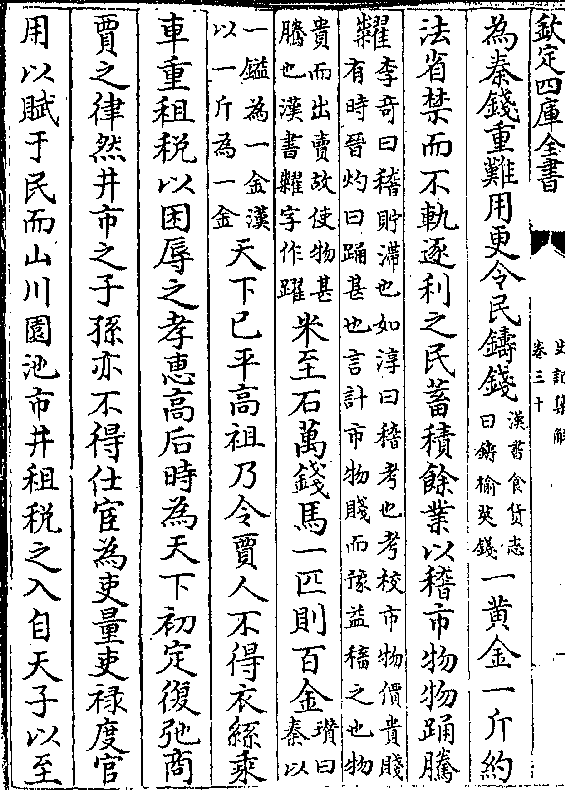 欽定四庫全書
史記集解
卷三十
一
為秦錢重難用更令民鑄錢漢書食貨志曰鑄榆莢錢一黄金一斤約
法省禁而不軌逐利之民蓄積餘業以稽市物物踊騰
糶李奇曰稽貯滯也如淳曰稽考也考校市物價貴賤有時晉灼曰踊甚也言計市物賤而豫益稽之也物
貴而出賣故使物甚騰也漢書糶字作躍米至石萬錢馬一匹則百金瓚曰秦以
一鎰為一金漢以一斤為一金天下已平高祖乃令賈人不得衣絲乘
車重租税以困辱之孝惠高后時為天下初定復弛商
賈之律然井市之子孫亦不得仕宦為吏量吏禄度官
用以賦于民而山川園池市井租税之入自天子以至